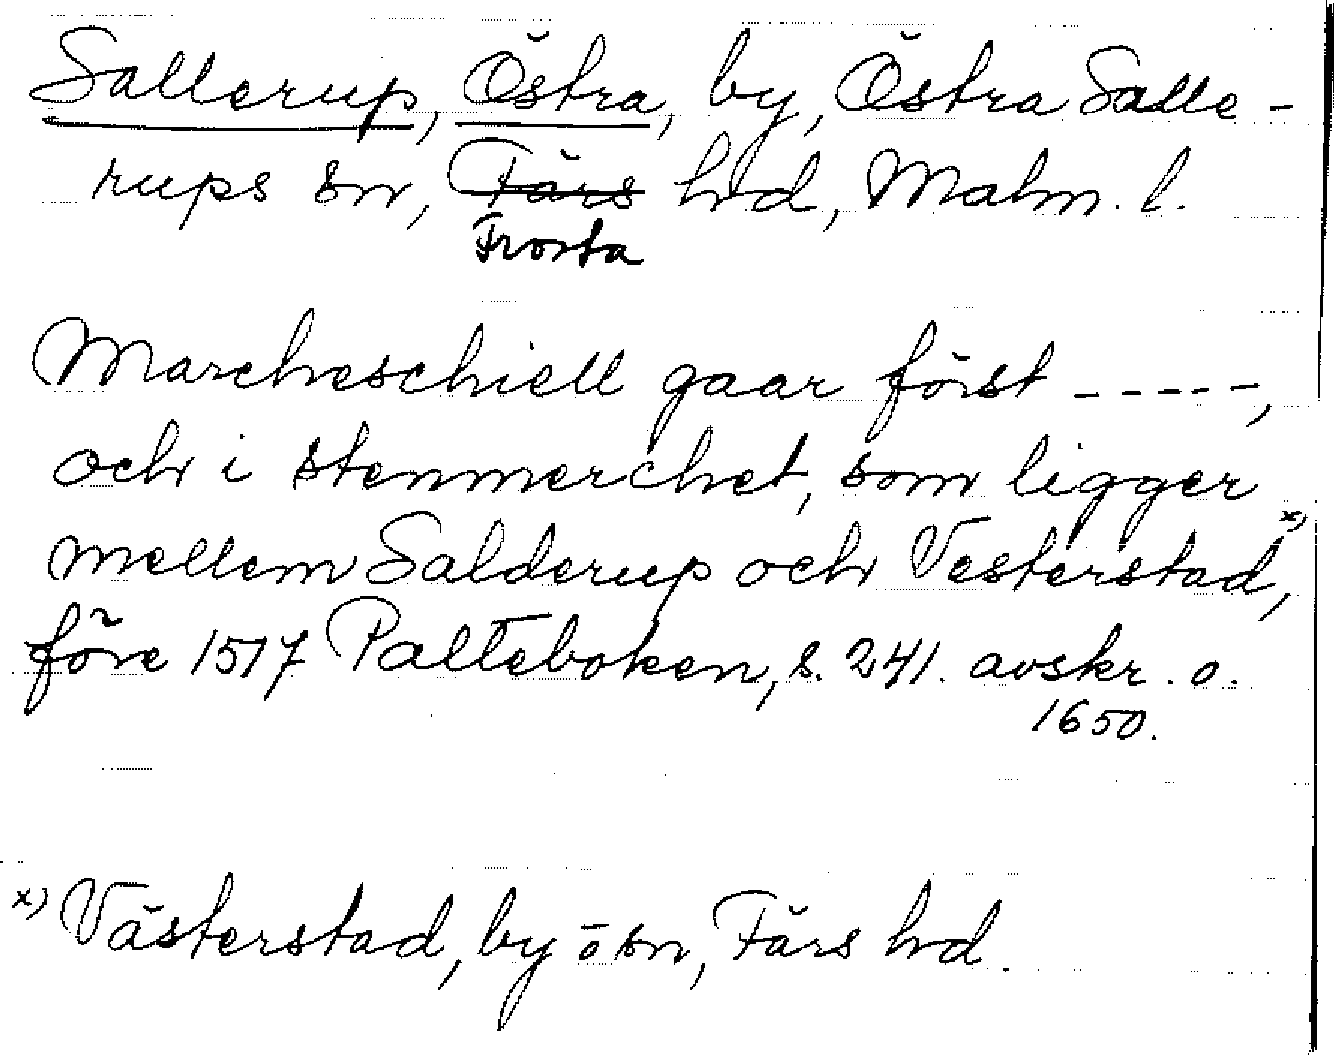 Sallerup, Östra, by, Östra Salle-
rups sn, Färs hd, Malm. l.
Frosta
Marcheschiell gaar först -----,
och i stenmerchet, som ligger
mellem Salderup och Vesterstad, x)
före 1517 Palteboken, s. 241. avskr. o.
1650.
x) Västerstad, by o sn, Färs hd.